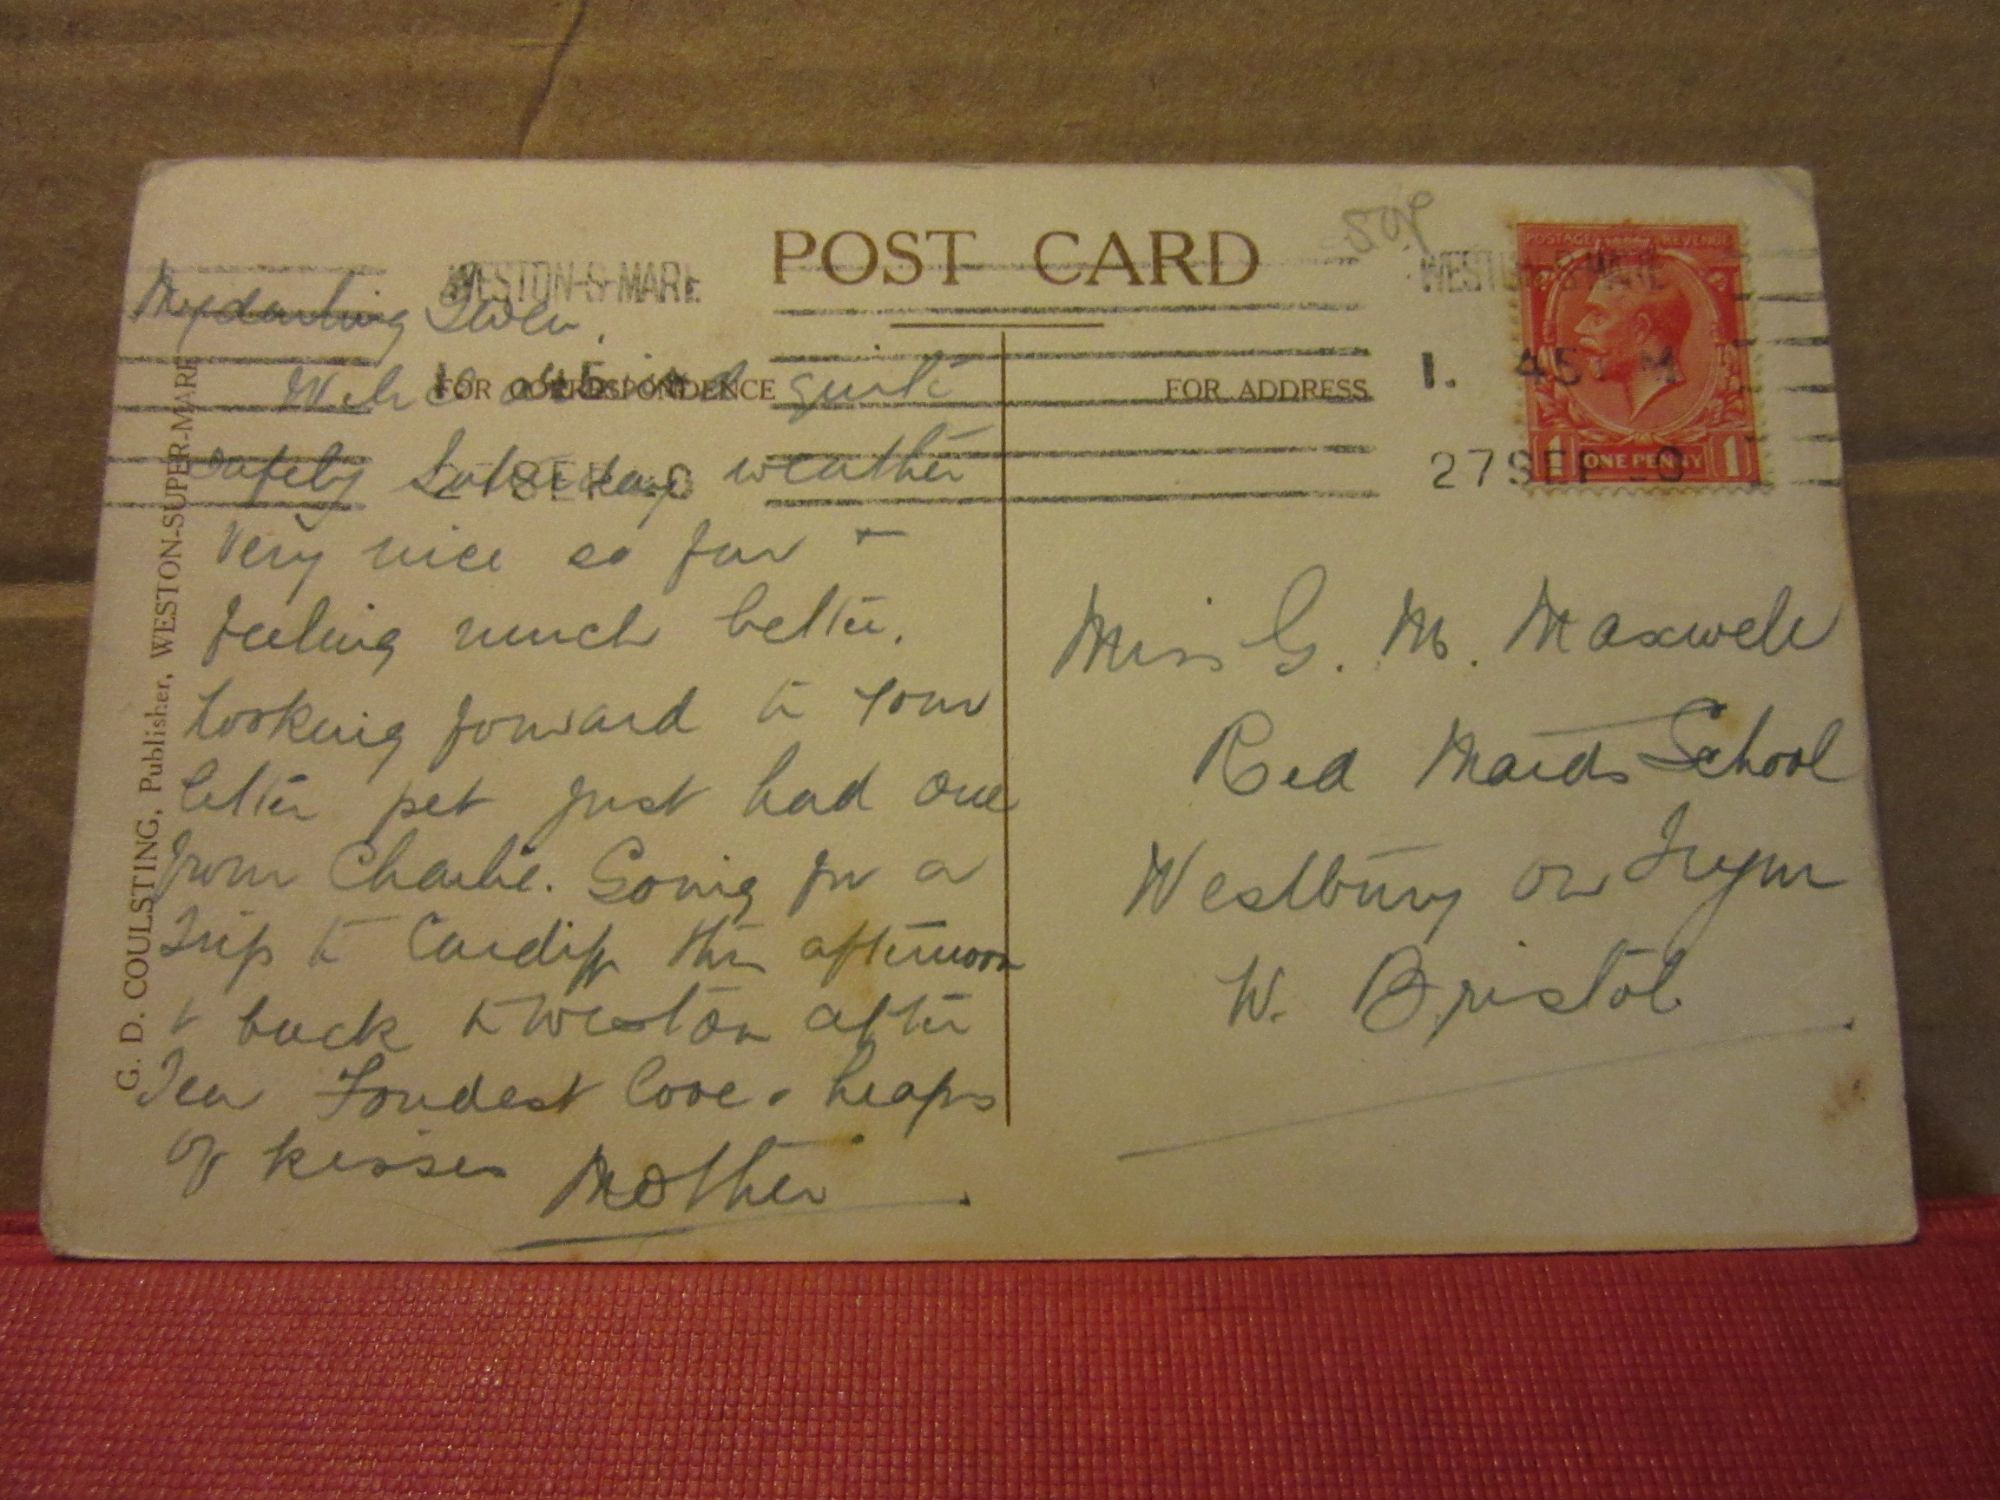 POST CARD
50p
WESTON-S-MARE
WESTON-S-MARE
FOR CORRESPONDENCE
FOR ADDRESS
1. 45 PM
27 SEP 20
POSTAGE REVENUE
ONE PENNY
G. D. COULSTING, Publisher, WESTON-SUPER-MARE
My darling Gwen,
We arrived quite
safely Saturday weather
Very nice so far +
feeling much better.
Looking forward to your
letter pet just had one
from Charlie. Going for a
Trip to Cardiff this afternoon
+ back to Weston after
Tea Fondest love & heaps
of kisses Mother
Miss G. M. Maxwell
Red Maids School
Westbury on Trym
W. Bristol